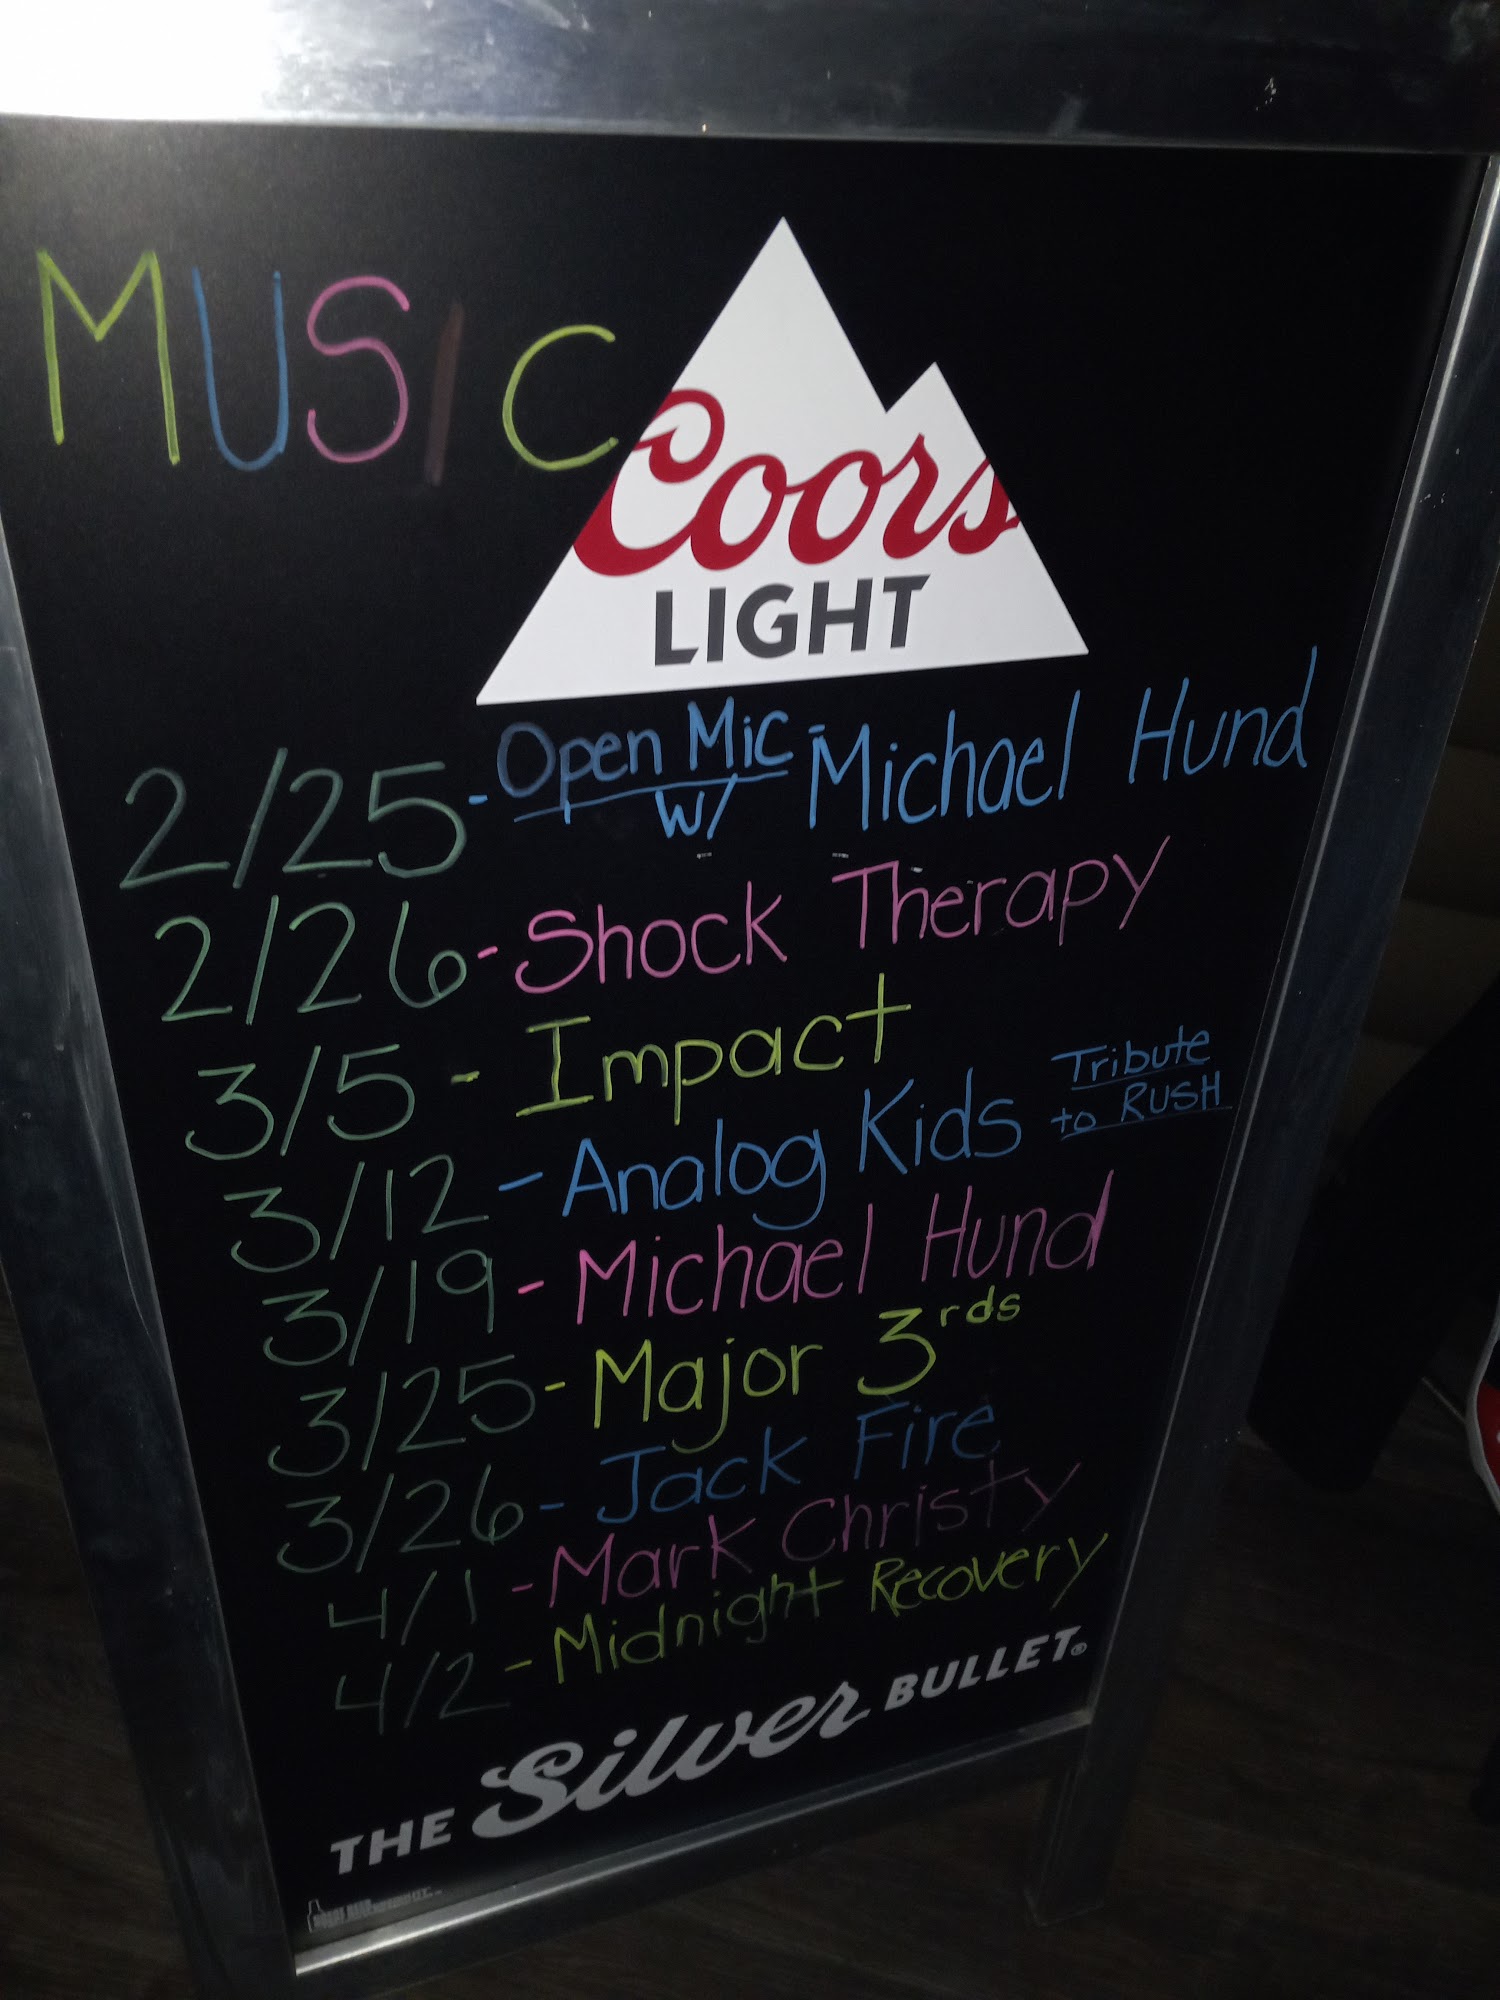 MUSIC
Coors
LIGHT
2/25 - Open Mic w/ - Michael Hund
2/26 - Shock Therapy
3/5 - Impact
3/12 - Analog Kids Tribute to RUSH
3/19 - Michael Hund
3/25 - Major 3rds
3/26 - Jack Fire
4/1 - Mark Christy
4/2 - Midnight Recovery
THE Silver BULLET®